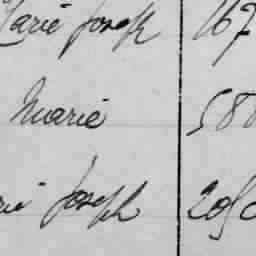 Marie Joseph 167
Marie 588
Marie Joseph 205